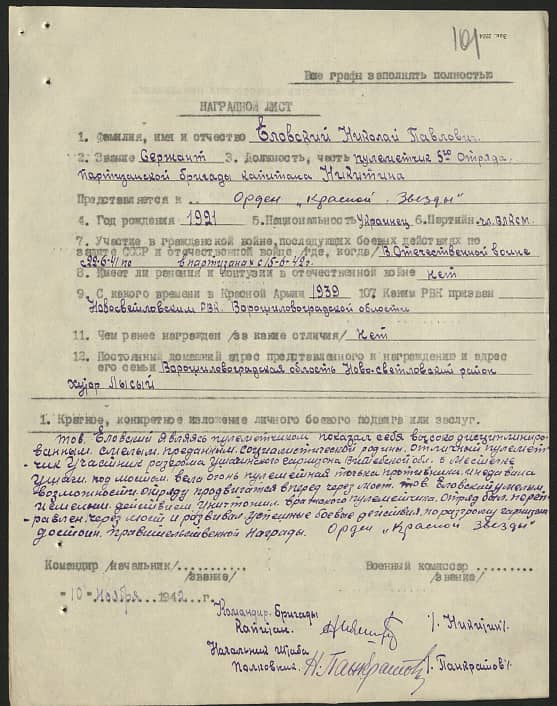 101
Все графы заполнять полностью
НАГРАДНОЙ ЛИСТ
1. Фамилия, имя и отчество Еловский Николай Павлович.
2. Звание Сержант 3. Должность, часть пулеметчик 5го Отряда.
партизанской бригады капитана Никитина
Представляется к Орден „Красной Звезды"
4. Год рождения 1921 5. Национальность Украинец 6. Партийн. чл. ВЛКСМ.
7. Участие в гражданской войне, последующих боевых действиях по
защите СССР и отечественной войне /где, когда/ В Отечественной войне
с 22-6-41 по в партизанах с 15-6-42 г.
8. Имеет ли ранения и контузии в отечественной войне нет
9. С какого времени в Красной Армии 1939 10. Каким РВК призван
Новосветловским РВК. Ворошиловоградской области
11. Чем ранее награжден /за какие отличия/ Нет
12. Постоянный домашний адрес представленного к награждению и адрес
его семьи Ворошиловоградская область Ново-светловский район
хутор Лысый
1. Краткое, конкретное изложение личного боевого подвига или заслуг.
Тов. Еловский являясь пулеметчиком показал себя высоко дисциплиниро-
ванным. смелым, преданным Социалистической родины. Отличный пулемет-
чик Участник разгрома Ушачинского гарнизона Витебской обл. в местечке
Ушачи под мостом, вела огонь пулеметная точка противника и не давала
возможности отряду продвигатся вперед через мост. тов. Еловский умелым,
и смелым действием, уничтожил вражеского пулеметчика. Отряд был переп-
равлен через мост и развивал успешные боевые действия, по разгрому гарнизона
достоин Правительственной Награды. Орден „Красной Звезды"
Командир /начальник/ .......... Военный комиссар ..........
/звание/ /звание/
"10" Ноября 1942 г.
Командир Бригады
Капитан. /Никитин/
Начальник Штаба
Полковник. Н. Панкратов /Панкратов/